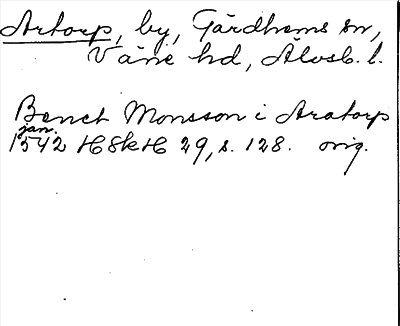 Artorp, by, Gärdhems sn,
Väne hd, Älvsb. l.
Benct Monsson i Aratorp
jan.
1542 HSkH 29, s. 128. orig.